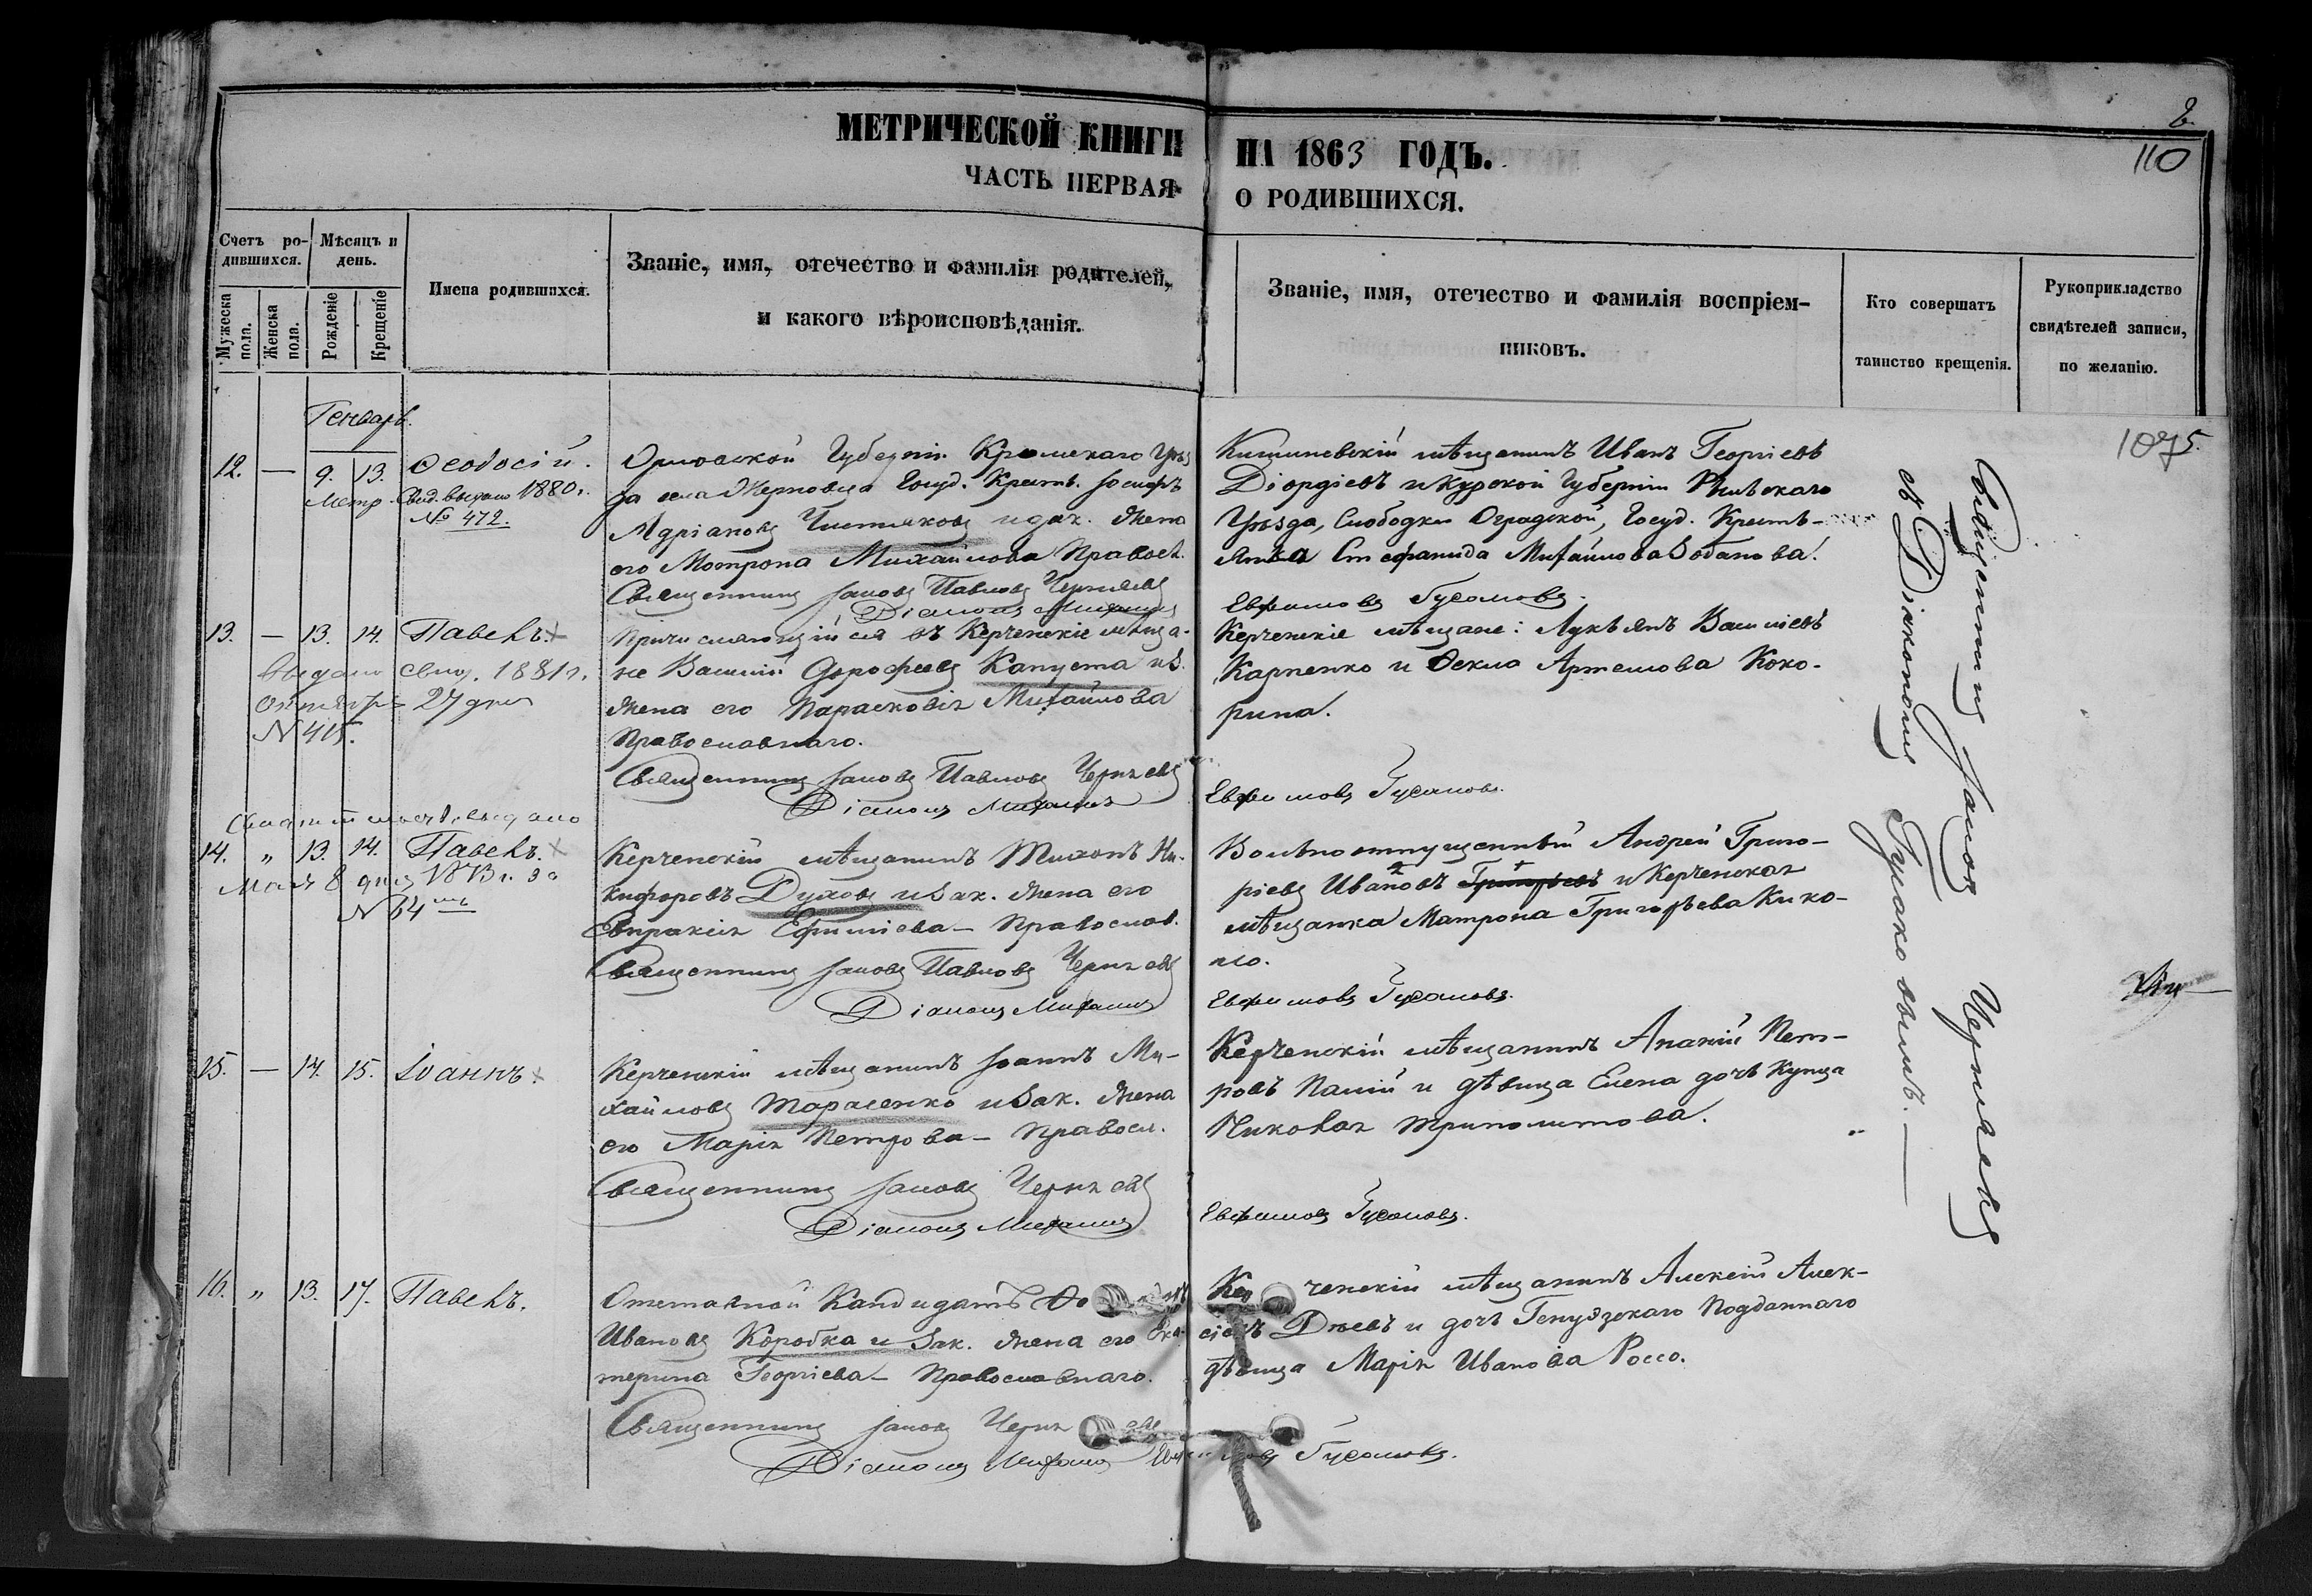 2.
110
МЕТРИЧЕСКОЙ КНИГИ НА 1863 ГОДЪ.
ЧАСТЬ ПЕРВАЯ О РОДИВШИХСЯ.
Счетъ родившихся.
Мѣсяцъ и день.
Мужеска пола.
Женска пола.
Рожденіе
Крещеніе
Имена родившихся.
Званіе, имя, отечество и фамилія родителей,
и какого вѣроисповѣданія.
Званіе, имя, отечество и фамилія воспріем-
никовъ.
Кто совершатъ
таинство крещенія.
Рукоприкладство
свидѣтелей записи,
по желанію.
1075.
Генварь.
12. — 9. 13. Ѳеодосій.
Метр. Свид. выдано 1880 г.
№ 472.
Орловской Губерніи Кромскаго Уѣз
да села Жерновца Госуд. Крест. Іосифъ
Адріановъ Чистяковъ и зак. жена
его Мотрона Михайлова Правосл.
Священникъ Іаковъ Павловъ Черняевъ
Діаконъ Михаилъ
Кишиневскій мѣщанинъ Иванъ Георгіевъ
Діордіевъ и Курской Губерніи
Уѣзда, Слободки Оградской, Госуд. Кресть-
янка Стефанида Михайлова
Евфимовъ Гусаковъ.
13. — 13. 14. Павелъ.
выдано свид. 1881 г.
октября 27 дня
N 415.
Причисляющійся въ Керченскіе мѣща-
не Василій Дорофеевъ Капуста и з.
жена его Параскевія Михайлова
Православнаго.
Священникъ Іаковъ Павловъ Черняевъ
Діаконъ Михаилъ
Керченскіе мѣщане: Лукьянъ Васильевъ
Карпенко и Ѳекла Артемова Коко-
рина.
Евфимовъ Гусаковъ.
выдано
14. „ 13. 14. Павелъ.
Мая 8 дня за
N 64
Керченскій мѣщанинъ Тихонъ Ни-
кифоровъ Духовъ и зак. жена его
Евпраксія Ефимієва — Православ.
Священникъ Іаковъ Павловъ Черняевъ
Діаконъ Михаилъ
Вольноотпущенный Андрей Григо-
ріевъ Ивановъ Григорьевъ и Керченская
мѣщанка Матрона Григорьева Кико-
Евфимовъ Гусаковъ.
15. — 14. 15. Іоаннъ.
Керченскій мѣщанинъ Іоаннъ Ми-
хайловъ Тарасенко и зак. жена
его Марія Петрова — Правосл.
Священникъ Іаковъ Черняевъ
Діаконъ Михаилъ
Керченскій мѣщанинъ Ананій Пет-
ровъ Палій и дѣвица Елена дочь Купца
Триполитова.
Евфимовъ Гусаковъ.
16. „ 13. 17. Павелъ.
Отставной Кандидатъ
Ивановъ Коробка и зак. жена его Ека-
терина Георгіева — Православнаго.
Священникъ Іаковъ Черняевъ
Діаконъ Михаилъ
Керченскій мѣщанинъ Алексій Алек-
сіевъ и дочь Генуэзскаго Подданнаго
дѣвица Марія Иванова Россо.
Евфимовъ Гусаковъ.
Священникъ Іаковъ Черняевъ
съ Діакономъ Гусаковымъ. —